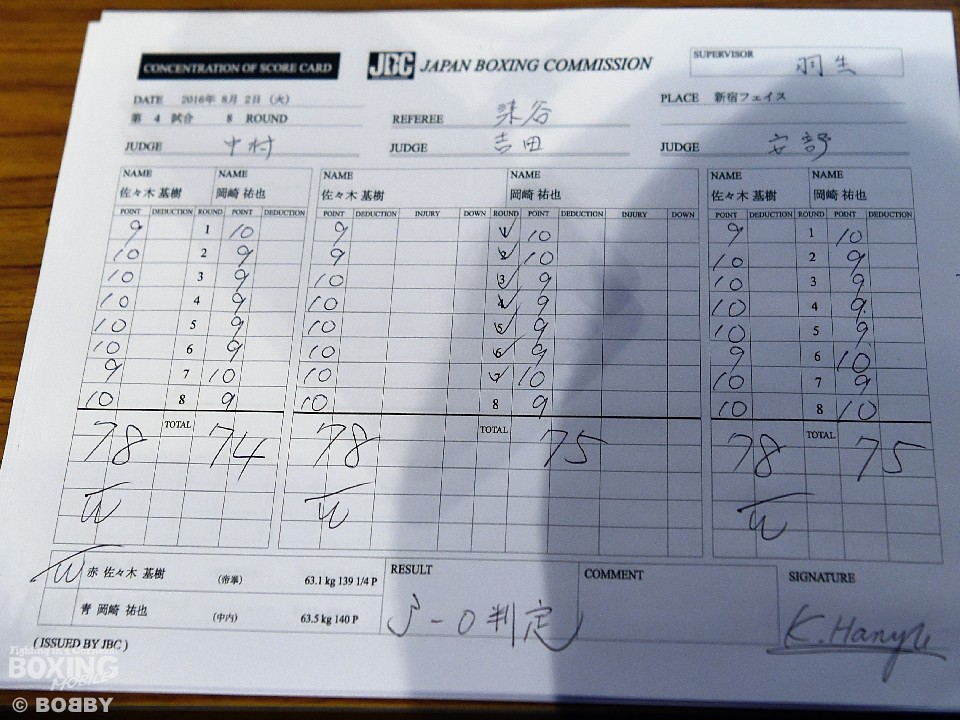 CONCENTRATION OF SCORE CARD JBC JAPAN BOXING COMMISSION SUPERVISOR 羽生
DATE 2016年 8月 2日 (火) PLACE 新宿フェイス
第 4 試合 8 ROUND REFEREE 染谷
JUDGE 中村 JUDGE 吉田 JUDGE 安部
NAME NAME NAME NAME NAME NAME
佐々木 基樹 岡崎 祐也 佐々木 基樹 岡崎 祐也 佐々木 基樹 岡崎 祐也
POINT DEDUCTION ROUND POINT DEDUCTION POINT DEDUCTION INJURY DOWN ROUND POINT DEDUCTION INJURY DOWN POINT DEDUCTION ROUND POINT DEDUCTION
9 1 10 9 1 10 9 1 10
10 2 9 9 2 10 10 2 9
10 3 9 10 3 9 10 3 9
10 4 9 10 4 9 10 4 9
10 5 9 10 5 9 10 5 9
10 6 9 10 6 9 9 6 10
9 7 10 10 7 10 10 7 9
10 8 9 10 8 9 10 8 10
78 TOTAL 74 78 TOTAL 75 78 TOTAL 75
W W W
W 赤 佐々木 基樹 (帝拳) 63.1 kg 139 1/4 P RESULT COMMENT SIGNATURE
青 岡崎 祐也 (中内) 63.5 kg 140 P 3-0判定 K.Hanyu
( ISSUED BY JBC )
BOXING
MOBILE
© BOBBY